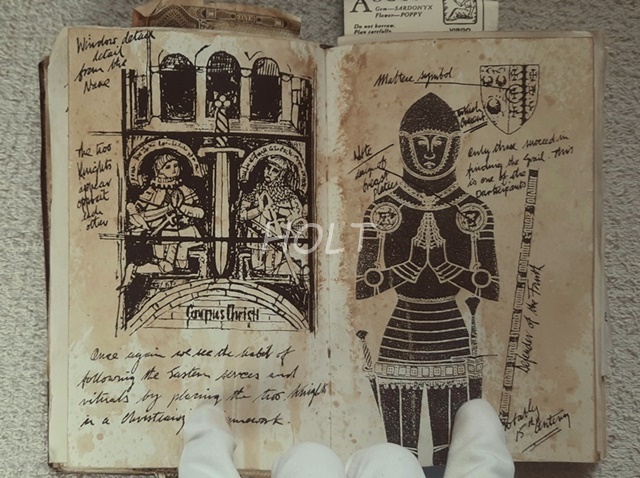 Gem—SARDONYX
Flower—POPPY
Do not borrow.
Plan carefully.
VIRGO
Window detail
detail
from the
Nave
The two
Knights
appear
opposit
each
other
Corpus Christi
Once again we see the habit of
following the Eastern
rituals by placing the two Knights
in a Christian
Maltese symbol
Note
breast
plates
Only three succeed in
finding the Grail. This
is one of the
participants
Defender of the Truth
15th Century
HOLT